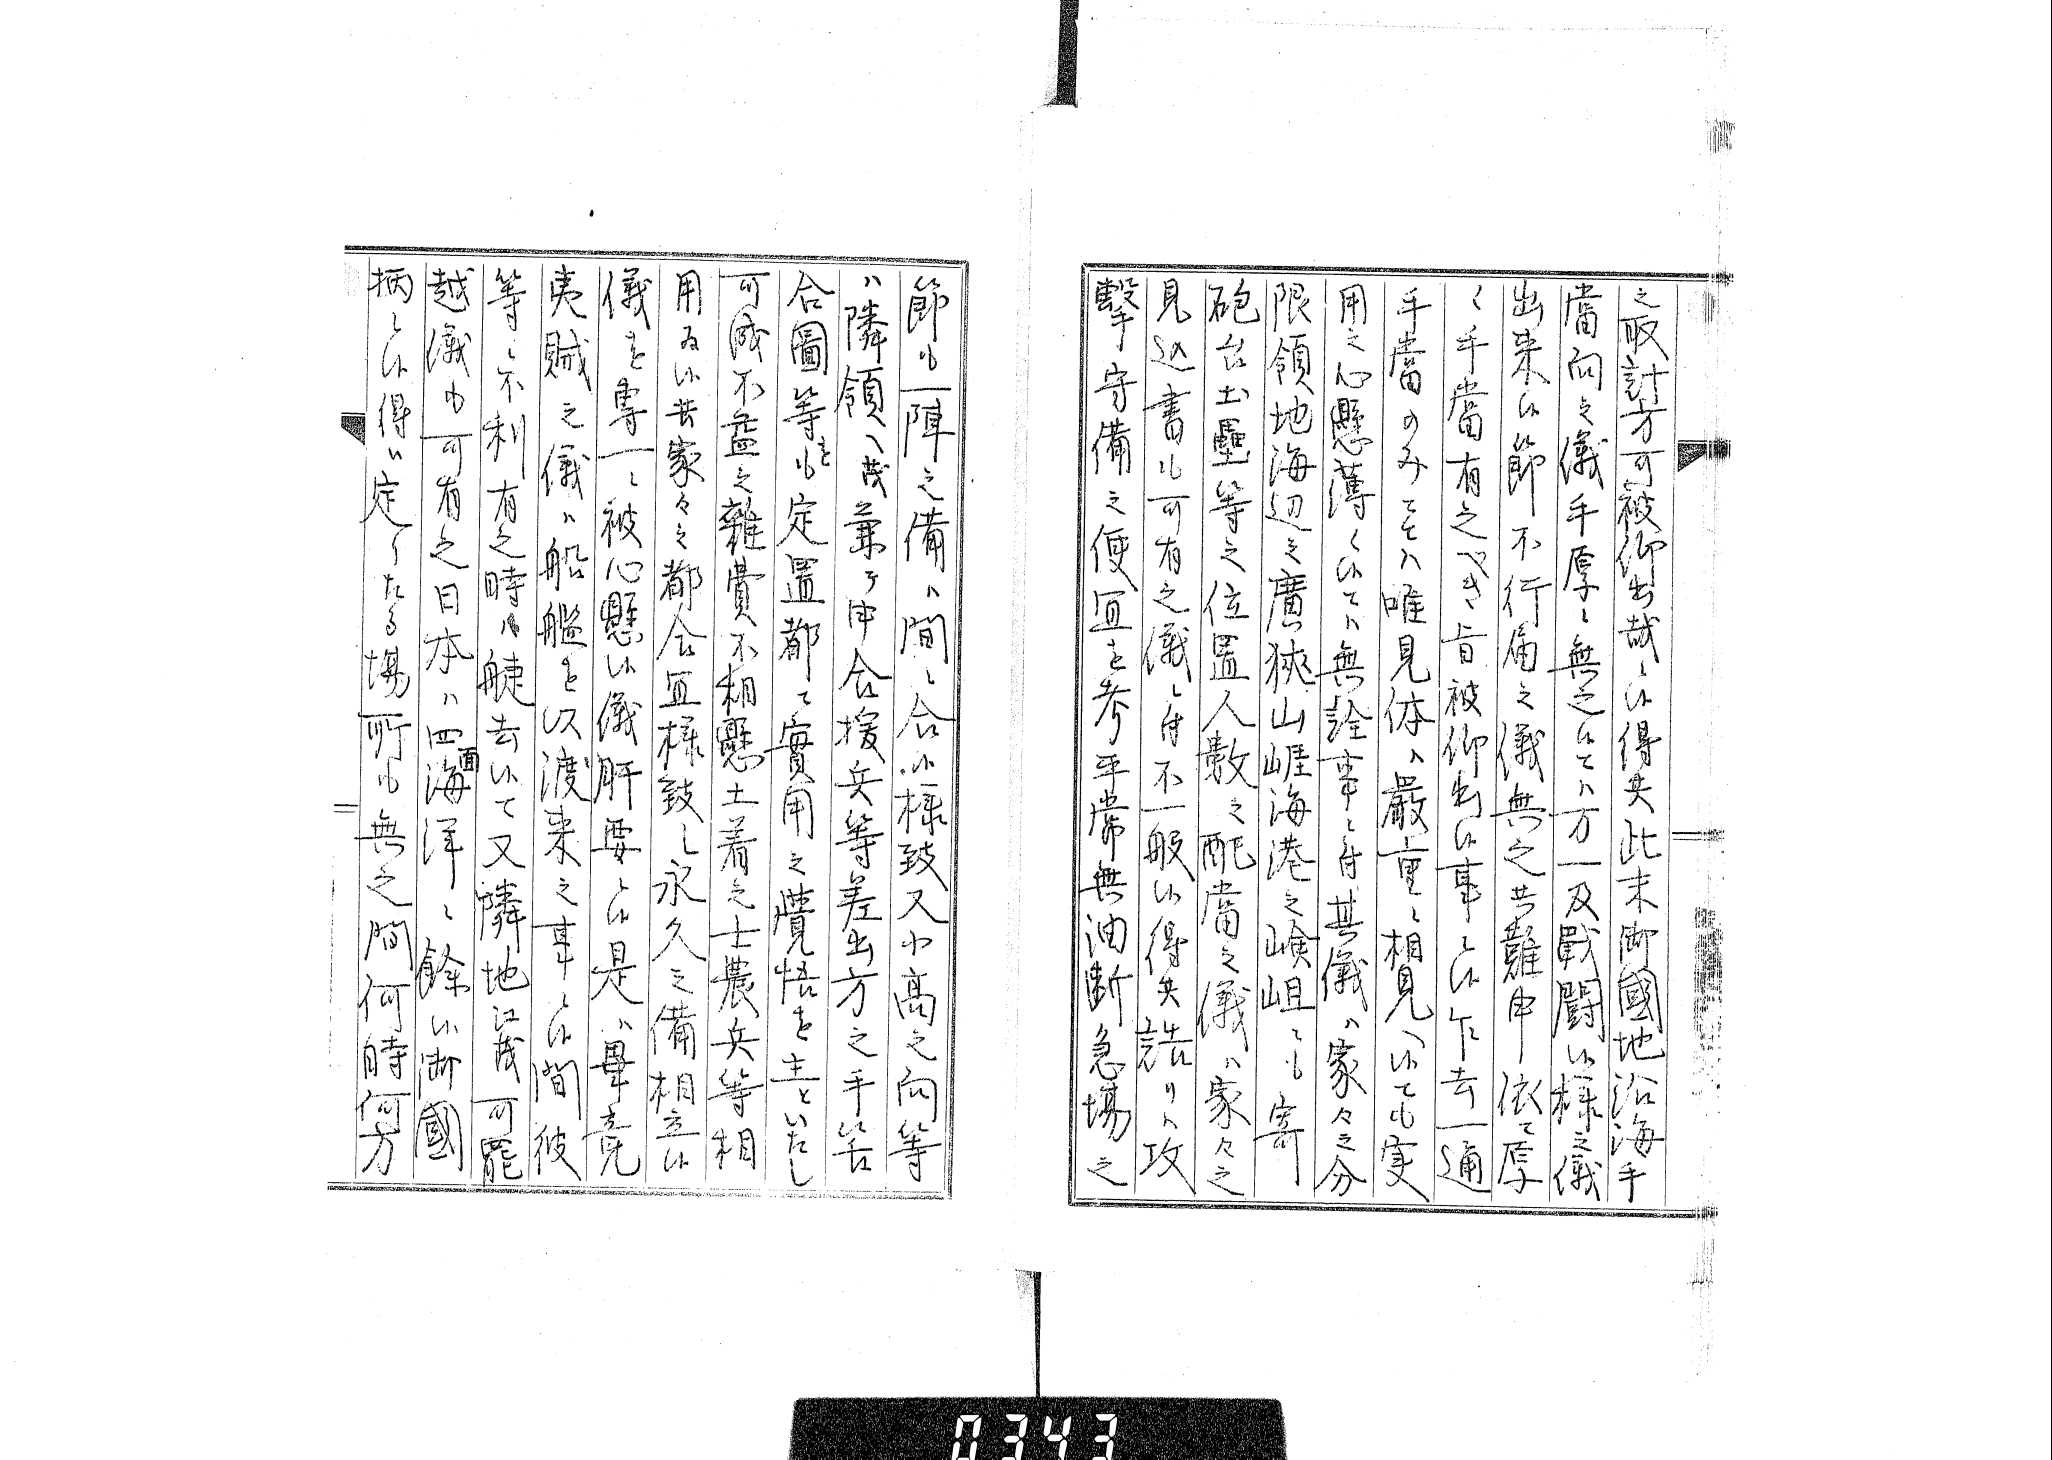 之取計方可被仰出哉ニ候得共此末御國地沿海手
當向之儀手厚ニ無之候てハ万一及戰鬪候様之儀
出来候節不行届之儀無之共難申依て厚
く手當有之べき旨被仰出候事ニ候乍去一通
手當のみニてハ唯見体ハ嚴重ニ相見へ候ても实
用之心懸薄く候てハ無詮事ニ付其儀ハ家々之分
限領地海辺之廣狹山崕海港之嶮岨ニも寄
砲台土壘等之位置人數之配當之儀ハ家々之
見込書も可有之儀ニ付不一般候得共詰リハ攻
擊守備之便宜を考平常無油断急場之
節も一陣之備ハ間ニ合候様致又小高之向等
ハ隣領へ茂兼テ申合援兵等差出方之手筈
合圖等をも定置都て實用之覺悟を主といたし
可成不益之雜費不相懸土着之士農兵等相
用ゐ候共家々之都合宜様致し永久之備相立候
儀を專一ニ被心懸候儀肝要ニ候是ハ畢竟
夷賊之儀ハ船艦を以渡来之事ニ候間彼
等ニ不利有之時ハ艇去候て又隣地江茂可罷
越儀も可有之日本ハ四面海洋ニ餘候御國
柄ニ候得は定りたる場所も無之間何時何方
0343